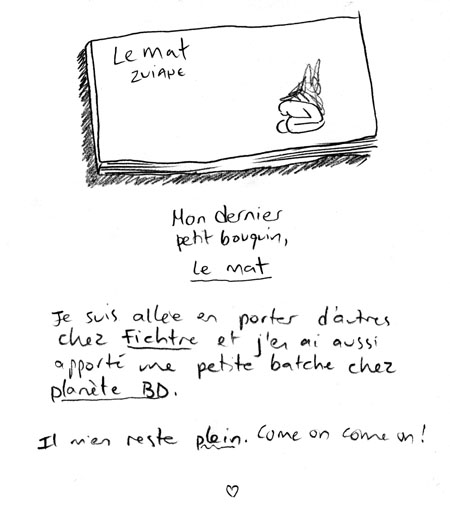 Le mat
ZVIANE
Mon dernier
petit bouquin,
Le mat
Je suis allée en porter d'autres
chez Fichtre et j'en ai aussi
apporté une petite batche chez
planète BD.
Il m'en reste plein. Come on come on!